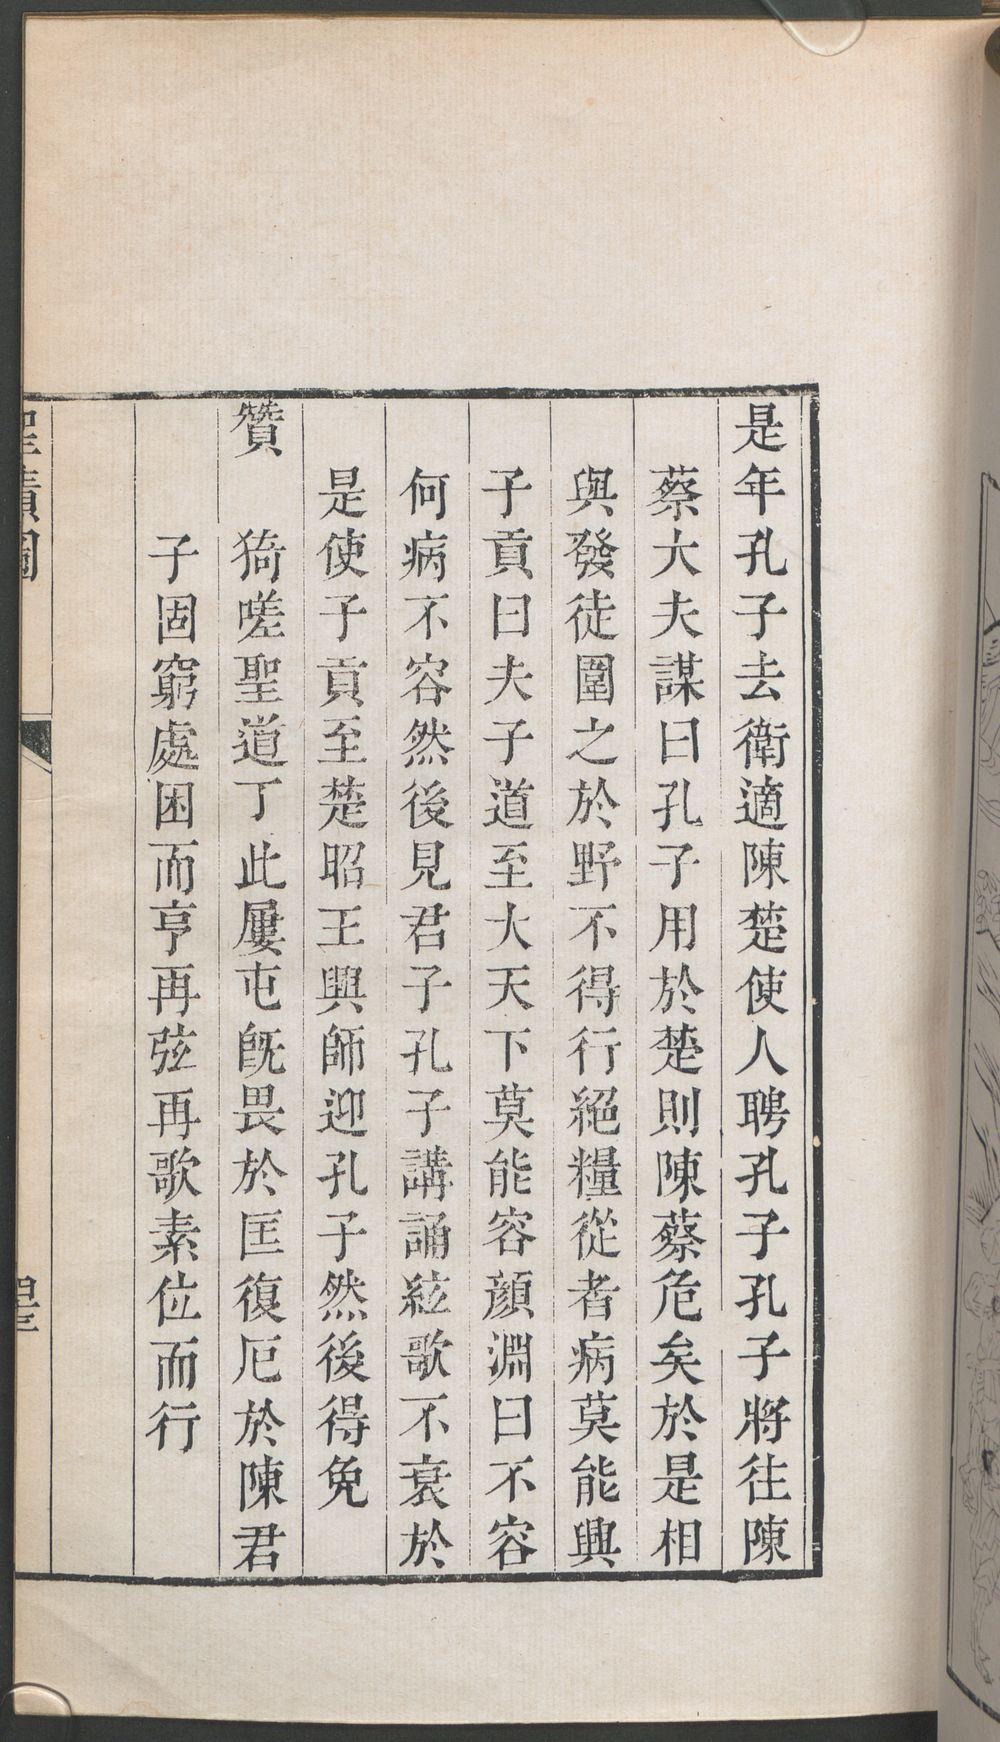 是年孔子去衛適陳楚使人聘孔子孔子將往陳
蔡大夫謀曰孔子用於楚則陳蔡危矣於是相
與發徒圍之於野不得行絕糧從者病莫能興
子貢曰夫子道至大天下莫能容顏淵曰不容
何病不容然後見君子孔子講誦絃歌不衰於
是使子貢至楚昭王興師迎孔子然後得免
贊 猗嗟聖道丁此屢屯旣畏於匡復厄於陳君
子固窮處困而亨再弦再歌素位而行
聖蹟圖